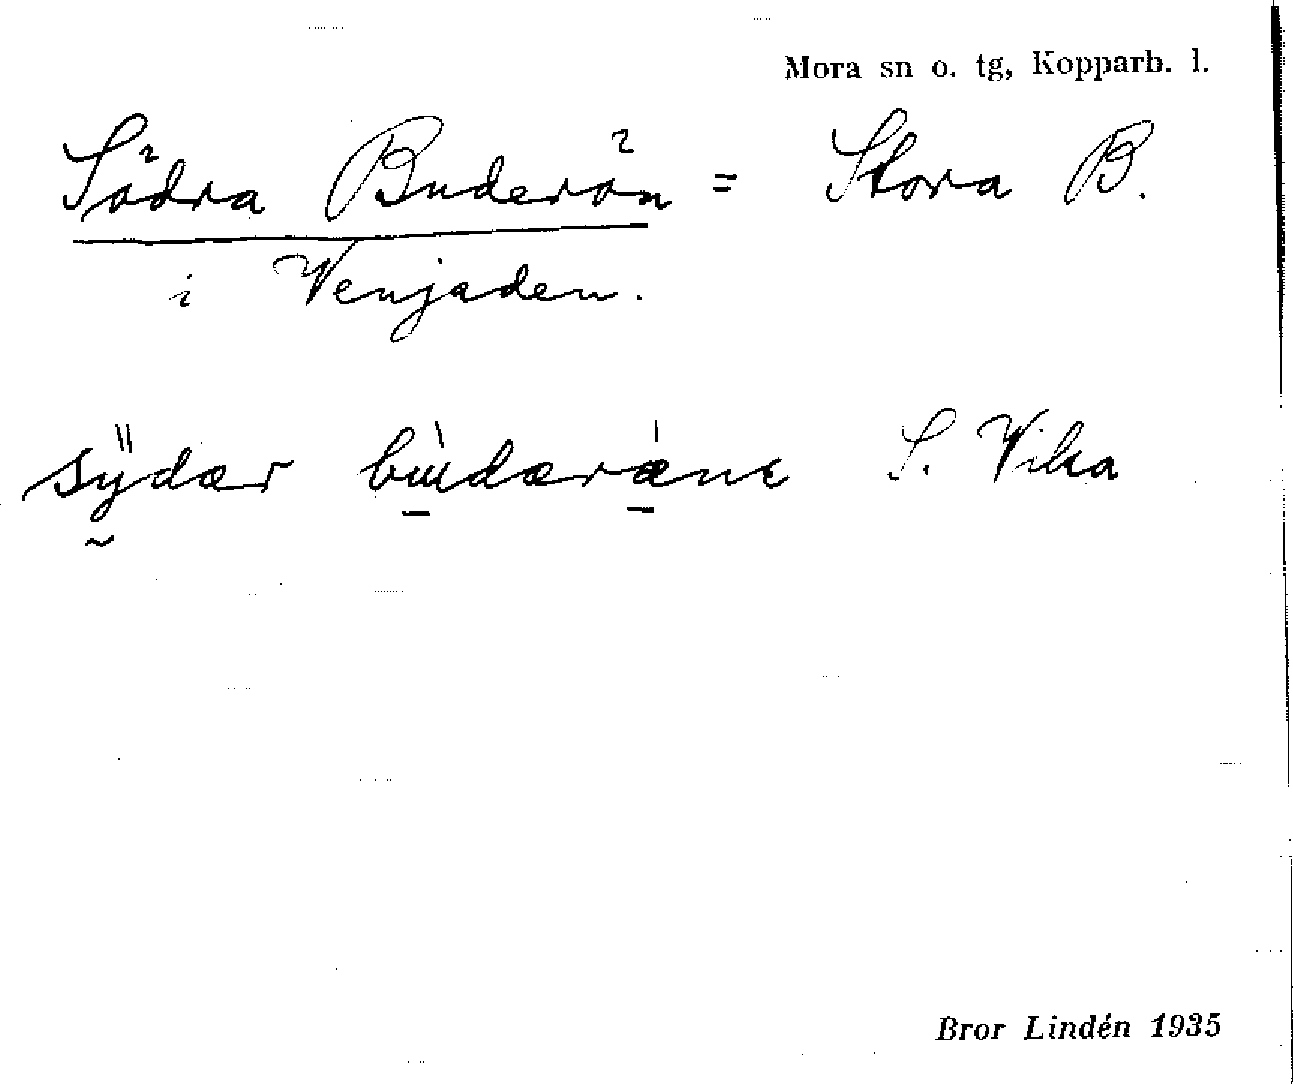 Mora sn o. tg, Kopparb. l.
Södra Buderön = Stora B.
i Venjaden.
sÿdær bùdæræ̍ne S. Vika
Bror Lindén 1935